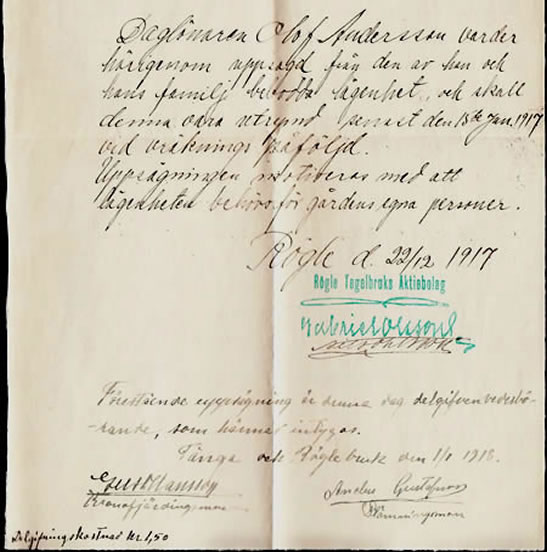 Daglönaren Olof Andersson varder
härigenom uppsagd från den av han och
hans familj bebodda lägenhet, och skall
denna vara utrymd senast den 15de Jan. 1917
vid vräknings påföljd.
Uppsägningen motiveras med att
lägenheten behövs för gårdens egna personer.
Rögle d. 22/12 1917
Rögle Tegelbruks Aktiebolag
Gabriel Olsson
Förestående uppsägning är denna dag delgifven vedebö-
rande, som härmed intygas.
Tånga och Röglebruk den 1/1 1918.
Gust Hansson
Kronofjärdingsman
Anders Gustafsson
Delgifningskostnad Kr. 1,50